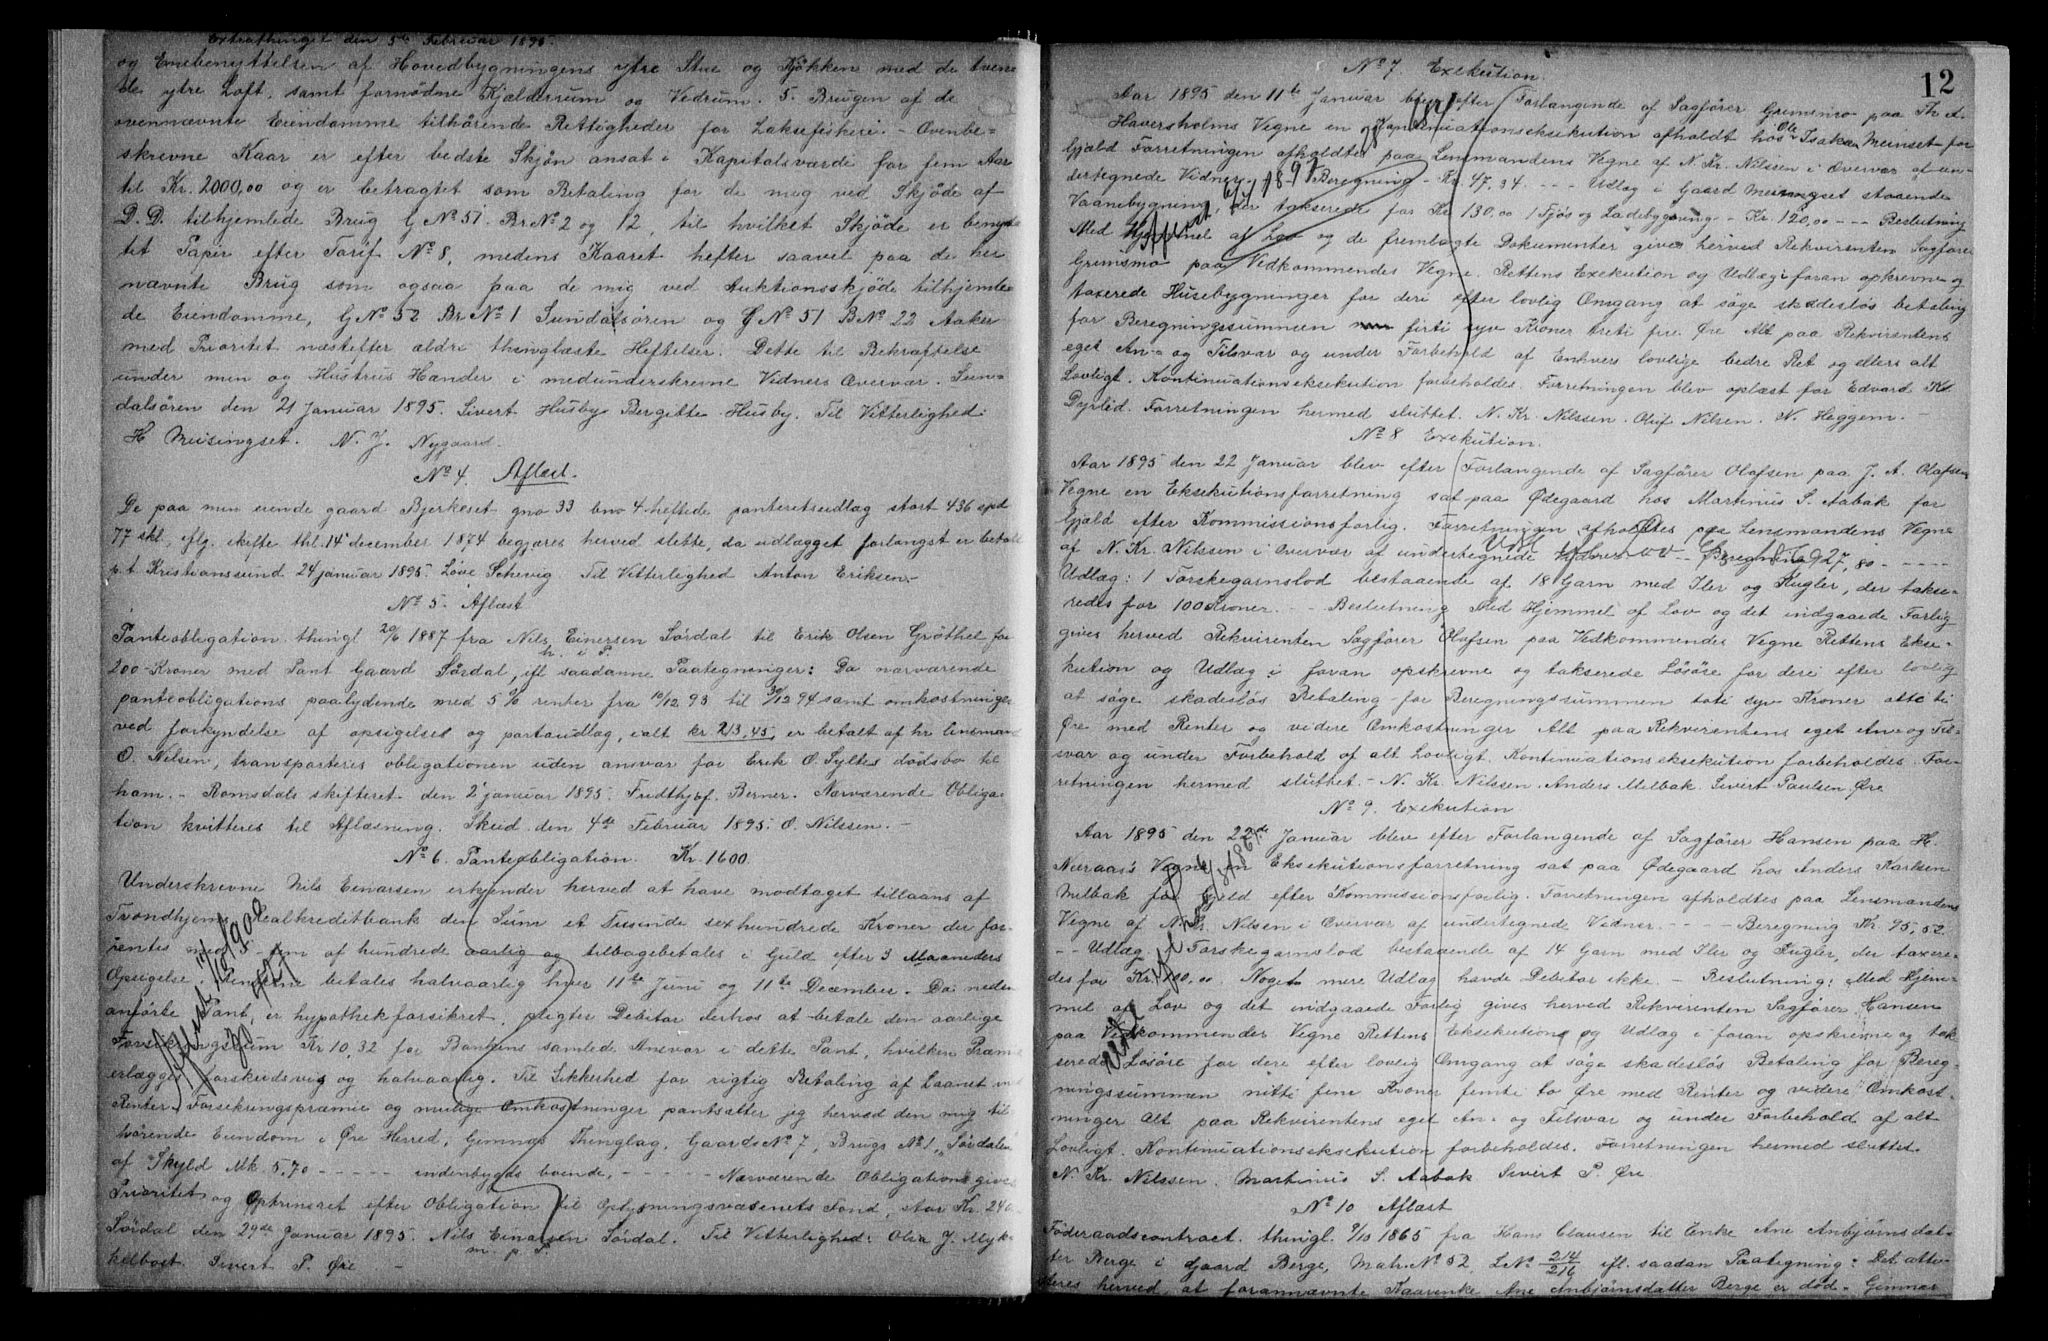 Extrathinget den 5te Februar 1895.
og Enebenyttelsen af Hovedbygningens ytre Stue og Kjøkken med de tven
de ytre Loft, samt fornødne Kjælderrum og Vedrum. 5. Brugen af de
ovennævnte Eiendomme tilhørende Rettigheder for Laksefiskeri. - Ovenbe-
skrevne Kaar er efter bedste Skjøn ansat i Kapitalsværdi for fem Aar
til Kr. 2000,00 og er betragtet som Betaling for de mig ved Skjøde af
D.D. tilhjemlede Brug G No 51. Br No 2 og 12, til hvilket Skjøde er benyt
tet Papir efter Tarif No 8, medens Kaaret hefter saavel paa de her
nævnte Brug som ogsaa paa de mig ved Auktionsskjøde tilhjemle
de Eiendomme, G No 52 Br No 1 Sundalsøren og G No 51 B No 22 Aaker
med Prioritet næstefter ældre thinglæste Heftelser. Dette til Bekræftelse
under min og Hustrus Hænder i medunderskrevne Vidners Overvær. Sun-
dalsøren den 21 Januar 1895. Sivert Husby Bergitte Husby. Til Vitterlighed:
H Meisingset. N. J. Nygaard.
No 4. Aflæst.
De paa min eiende gaard Bjerkeset gno 33 bno 4 heftede panteretsudlæg stort 436 spd
77 skl, eflg. skifte thl. 14 december 1874 begjæres herved slette, da udlægget forlængst er betalt
p.t. Kristianssund 24 januar 1895. Løve Schevig. Til Vitterlighed Anton Eriksen.-
No 5. Aflæst
Panteobligation thingl 20/6 1887 fra Nils Einersen Sørdal til Erik Olsen Grøthel for
h. i P.
200 Kroner med Pant Gaard Sørdal, ifl saadanne Paategninger: Da nærværende
panteobligations paalydende med 5 % renter fra 10/12 93 til 30/12 94 samt omkostninger
ved forkyndelse af opsigelse og portoudlæg, ialt kr 213,45, er betalt af hr lensmand
O. Nilsen, transporteres obligationen uden ansvar for Erik O. Syltes dødsbo til
ham. - Romsdals skifteret den 2 januar 1895. Fridthjof. Berner. Nærværende Obliga-
tion kvitteres til Aflæsning. Skeid den 4de Februar 1895. O. Nilssen. -
No 6. Panteobligation. Kr. 1600.
Underskrevne Nils Einarsen erkjender herved at have modtaget tillaans af
Trondhjems Realkreditbank den Sum et Tusinde sexhundrede Kroner der for-
rentes med fem af hundrede aarlig og tilbagebetales i Guld efter 3 Maaneders
Opsigelse. Renterne betales halvaarlig hver 11te Juni og 11te December. Da neden
anførte Pant, er hypothekforsikret, pligter Debitor derhos at betale den aarlige
Forsikringssum Kr 10,32 for Bankens samlede Ansvar i dette Pant, hvilken Præmie
erlægges forskudsvis og halvaarlig. Til Sikkerhed for rigtig Betaling af Laanet med
Renter Forsikringspræmie og mulige Omkostninger pantsætter jeg herved den mig til
hørende Eiendom i Øre Herred, Gimnæs Thinglag, Gaards No 7, Brugs No 1 „Sørdalen
af Skyld Mk 5,70 - - - - - indenbygds boende, - - - - - Nærværende Obligation gives
Prioritet og Optrinsret efter Obligation til Oplysningsvæsenets Fond, stor Kr. 240
Sørdal den 29de Januar 1895. Nils Einarsen Sørdal. Til Vitterlighed: Ola J. Myk-
m. p. P.
kelbost. Sivert P. Øre -
Aflæst 14/10 1900
12
No 7. Exekution.
Aar 1895 den 11te Januar blev efter Forlangende af Sagfører Grimsmo paa Th A.
Haversholms Vegne en Kontinuationseksekution afholdt hos Ole Isaksen Meinset for
Gjæld Forretningen afholdtes paa Lensmandens Vegne af N. Kr. Nilsen i Overvær af un-
dertegnede Vidner. Beregning - Kr. 47,34. - - - Udlæg i Gaard Meiningset staaende
Vaanebygning, der takserede for Kr 130.00 1 Fjøs og Ladebygning - Kr. 120,00 - - - Beslutning
Med Hjemmel af Lov og de fremlagte Dokumenter gives herved Rekvirenten Sagfører
Grimsmo paa Vedkommendes Vegne Rettens Exekution og Udlæg i foran opskrevne og
taxerede Husebygninger for deri efter lovlig Omgang at søge skadesløs betaling
for Beregningssummen firti syv Kroner treti fire Øre Alt paa Rekvirentens
eget An- og Tilsvar og under Forbehold af Enhvers lovlige bedre Ret og ellers alt
Lovligt. Kontinuationseksekution forbeholdes. Forretningen blev oplæst for Edvard Kl
Dyrlid. Forretningen hermed sluttet. N. Kr. Nilssen. Oluf Nilsen. N. Heggem. -
No 8 Exekution.
Aar 1895 den 22 Januar blev efter Forlangende af Sagfører Olafsen paa J. A. Olafsens
Vegne en Eksekutionsforretning sat paa Ødegaard hos Martinus S. Aabak for
Gjæld efter Kommissionsforlig. Forretningen afholdtes paa Lensmandens Vegne
af N. Kr. Nilssen i Overvær af undertegnede Vidner - Beregning 27,80 - - - -
Udlæg: 1 Torskegarnslod bestaaende af 18 Garn med Iler og Kugler, der takse-
redes for 100 Kroner. - - Beslutning Med Hjemmel af Lov og det indgaaede Forlig
gives herved Rekvirenten Sagfører Olafsen paa Vedkommendes Vegne Rettens Ekse-
kution og Udlæg i foran opskrevne og takserede Løsøre for deri efter lovlig
at søge skadesløs Betaling for Beregningssummen toti syv Kroner otte ti
Øre med Renter og videre Omkostninger Alt paa Rekvirentens eget An- og Til-
svar og under Forbehold af alt Lovligt. Kontinuationseksekution forbeholdes. For-
retningen hermed sluttet. - N. Kr. Nilssen. Anders Melbak. Sivert Paulsen Øre
No 9. Exekution
Aar 1895 den 22de Januar blev efter Forlangende af Sagfører Hansen paa H.
Neeraas's Vegne en Eksekutionsforretning sat paa Ødegaard hos Anders Karlsen
Melbak for Gjæld efter Kommissionsforlig. Forretningen afholdtes paa Lensmandens
Vegne af N. Kr. Nilsen i Overvær af undertegnede Vidner. - - - - Beregning Kr 95,52
- - Udlæg 1 Torskegarnslod bestaaende af 14 Garn med Iler og Kugler, der taxere-
des for Kr. 100,00 Noget mere Udlæg havde Debitor ikke. - Beslutning: Med Hjem-
mel af Lov og det indgaaede Forlig gives herved Rekvirenten Sagfører Hansen
paa Vedkommendes Vegne Rettens Eksekution og Udlæg i foran opskrevne og tak
serede Løsøre for dere efter lovlig Omgang at søge skadesløs Betaling for Bereg-
ningssummen nitti fem Kroner femti to Øre med Renter og videre Omkost-
ninger Alt paa Rekvirentens eget An- og Tilsvar og under Forbehold af alt
Lovligt. Kontinuationseksekution forbeholdes. Forretningen hermed sluttet
N. Kr. Nilssen. Martinus S. Aabak Sivert P. Øre
No 10 Aflæst
Føderaadscontract. thingl. 9/10 1865 fra Hans Clausen til Enke Ane Anbjørnsdat-
ter Berge i gaard Berge, Matr No 52, L No 214/216 ifl. saadan Paategning: Det atte-
steres herved, at forannævnte Kaarenke Ane Anbjørnsdatter Berge er død - Gimnæs